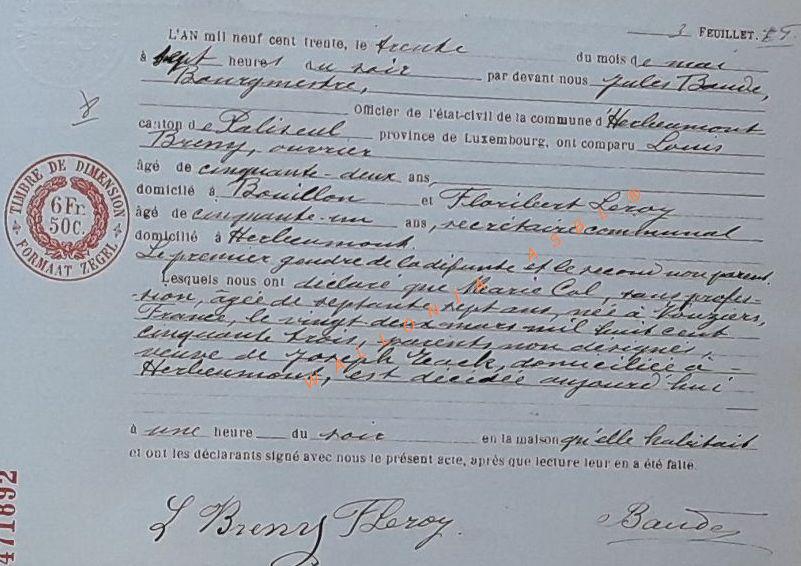 3 FEUILLET.
L'AN mil neuf cent trente, le trente du mois de mai
à sept heures du soir par devant nous Jules Baude,
Bourgmestre,
Officier de l'état-civil de la commune d'Herbeumont
canton de Paliseul province de Luxembourg, ont comparu Louis
Breny, ouvrier
âgé de cinquante-deux ans,
domicilié à Bouillon et Floribert Leroy
âgé de cinquante-un ans, secrétaire communal
domicilié à Herbeumont.
Le premier gendre de la défunte et le second non parent.
Lesquels nous ont déclaré que Marie Col, sans profes-
sion, âgée de septante sept ans, née à Vouziers,
France, le vingt deux mars mil huit cent
cinquante trois, parents non désignés,
veuve de Joseph Zack, domiciliée à
Herbeumont, est décédée aujourd'hui
à une heure du soir en la maison qu'elle habitait
et ont les déclarants signé avec nous le présent acte, après que lecture leur en a été faite.
L Breny FLeroy. Baude
TIMBRE DE DIMENSION
6 Fr.
50C.
FORMAAT ZEGEL
471892
WALLONIA ASBL ©